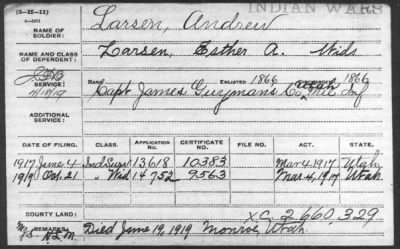 (3-35-11)
INDIAN WARS
NAME OF SOLDIER: Larsen, Andrew
NAME AND CLASS OF DEPENDENT: Larsen, Esther A. Wid
SERVICE: Rank ENLISTED 1866 1866
Capt James Guymans Co Utah Mil Inf
ADDITIONAL SERVICE:
DATE OF FILING. CLASS. APPLICATION NO. CERTIFICATE NO. FILE NO. ACT. STATE.
1917 June 4 Ind Surv 13618 10383 Mar 4, 1917 Utah
1919 Oct. 21 " Wid 14752 9563 Mar 4, 1917 Utah
COUNTY LAND:
XC 2 660,329
REMARKS: Died June 19, 1919 Monroe, Utah